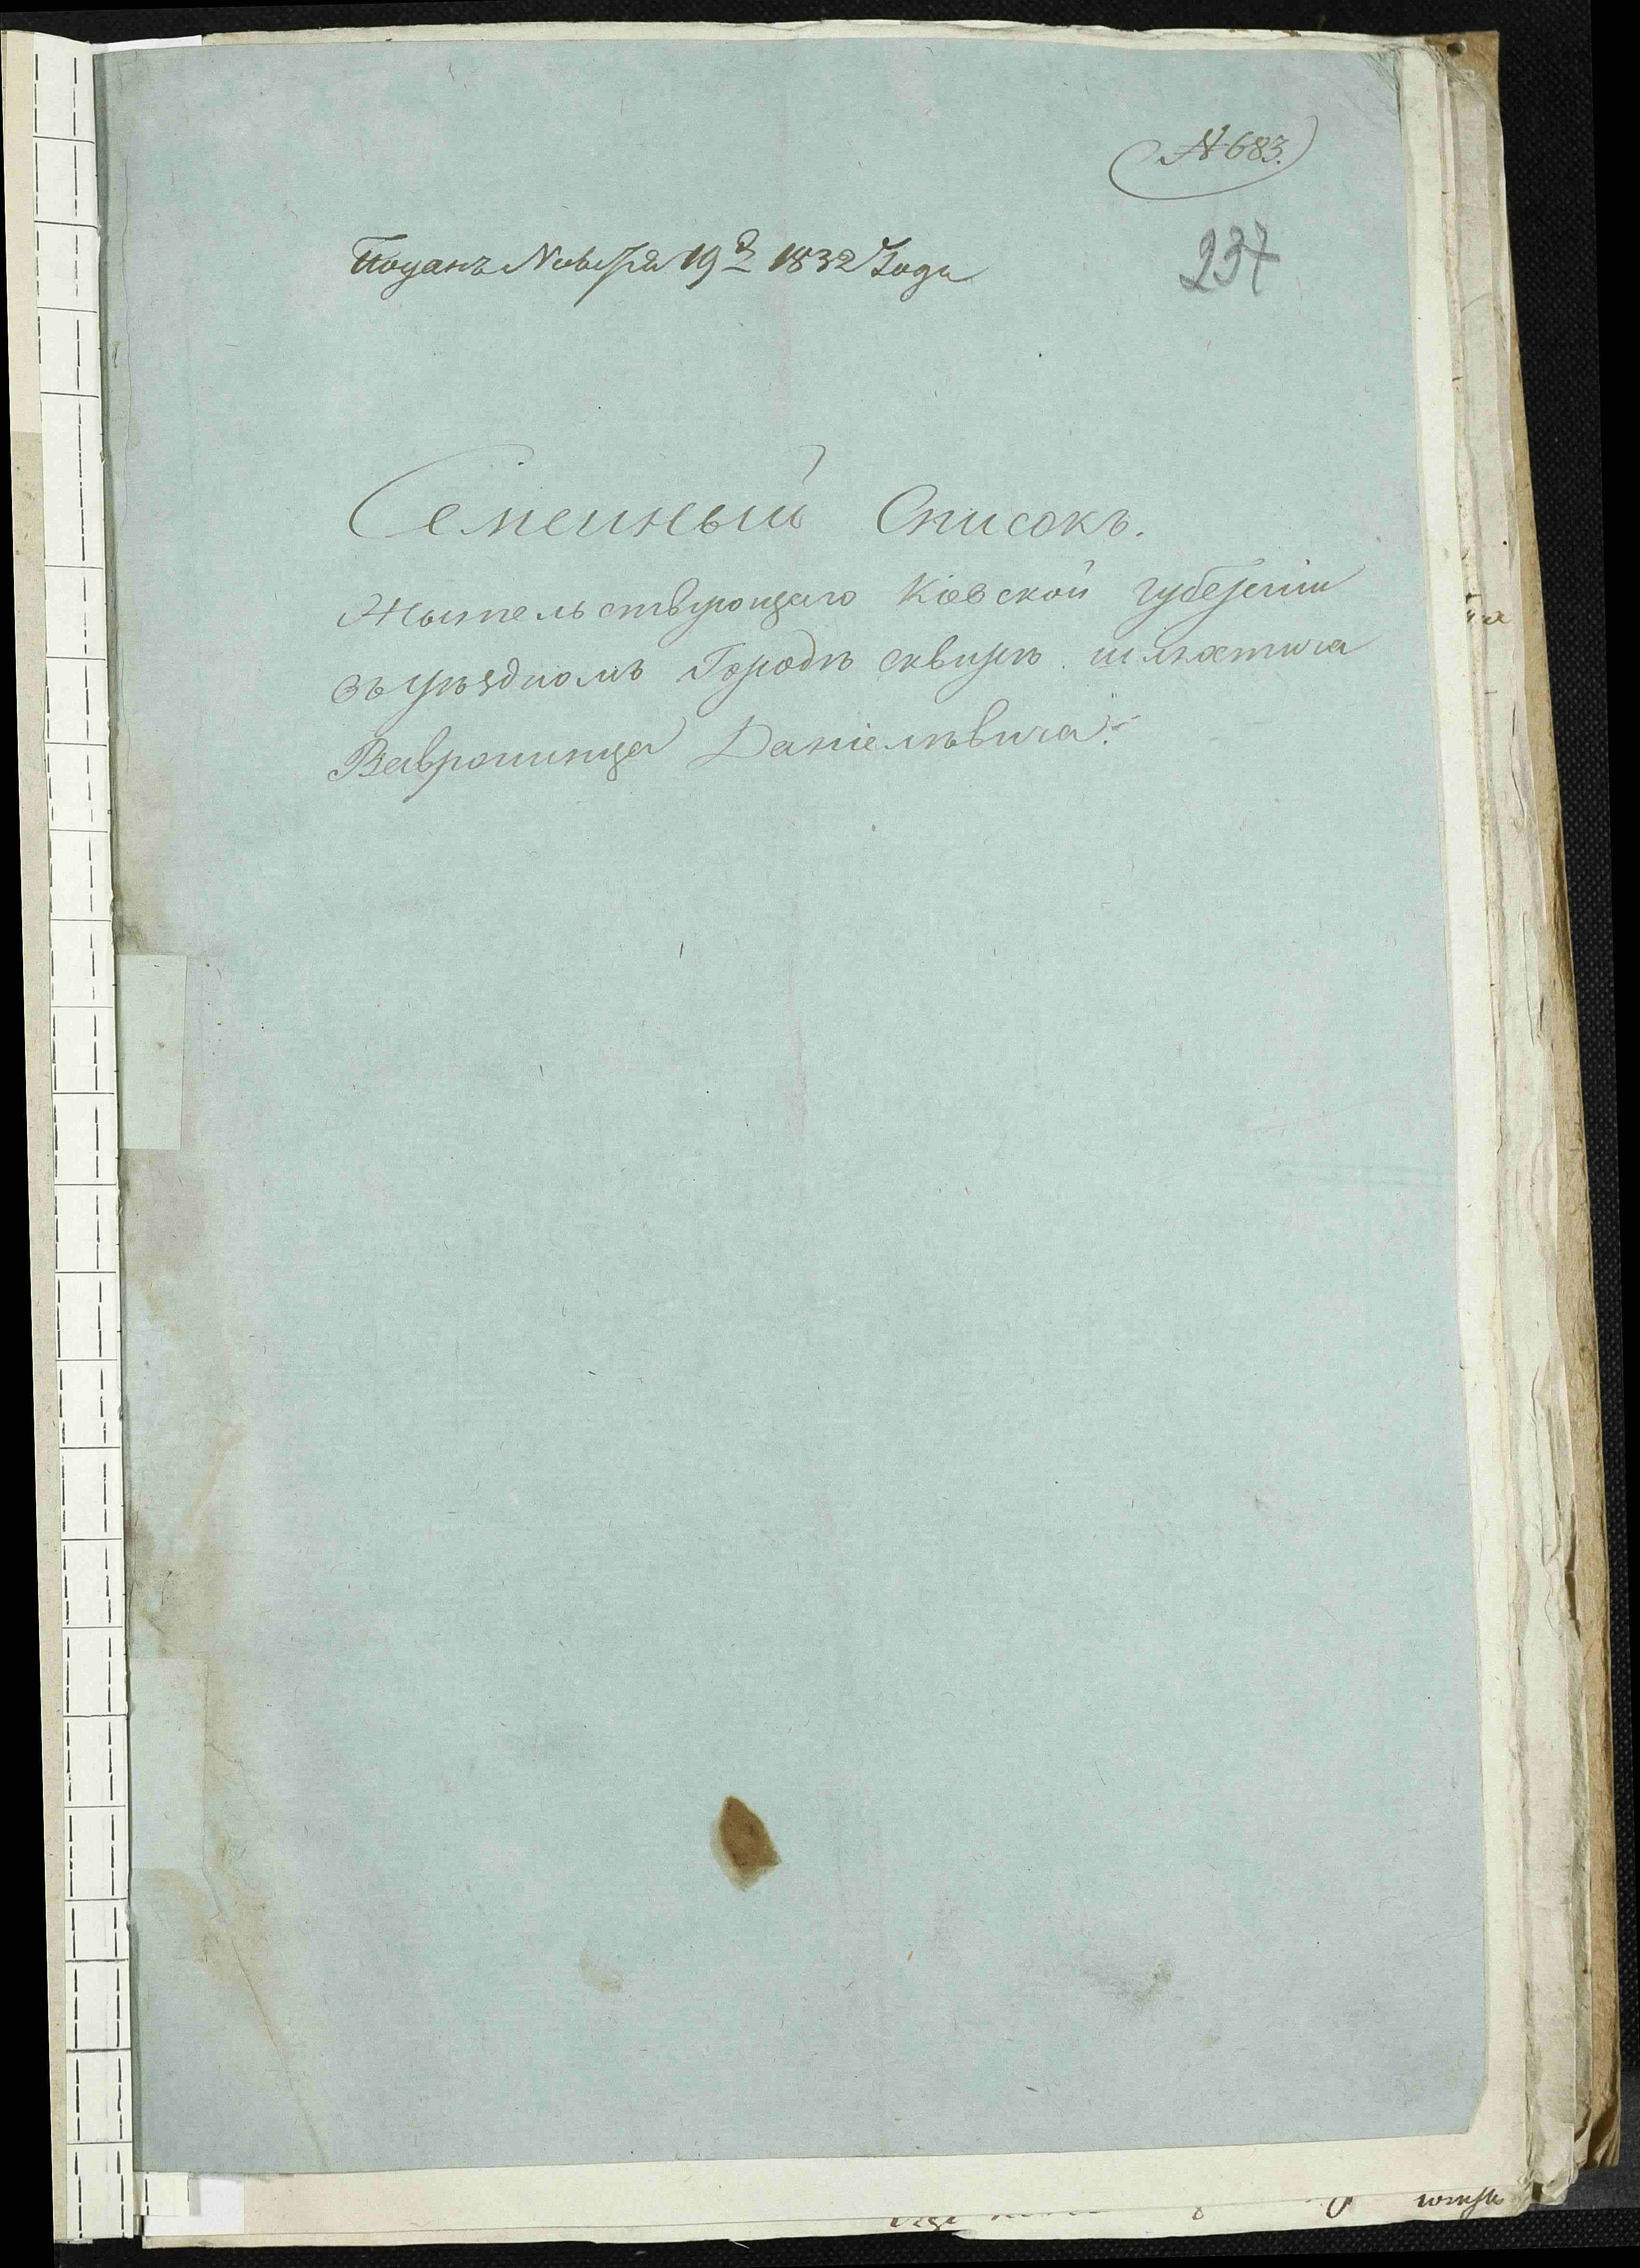 № 683.
Поданъ Ноября 19 д 1832 Года
237
Семейный Списокъ.
Жытельствующаго Кіевской губерніи
въ уѣздномъ Городѣ сквирѣ шляхтича
Вавринца Даніелѣвича